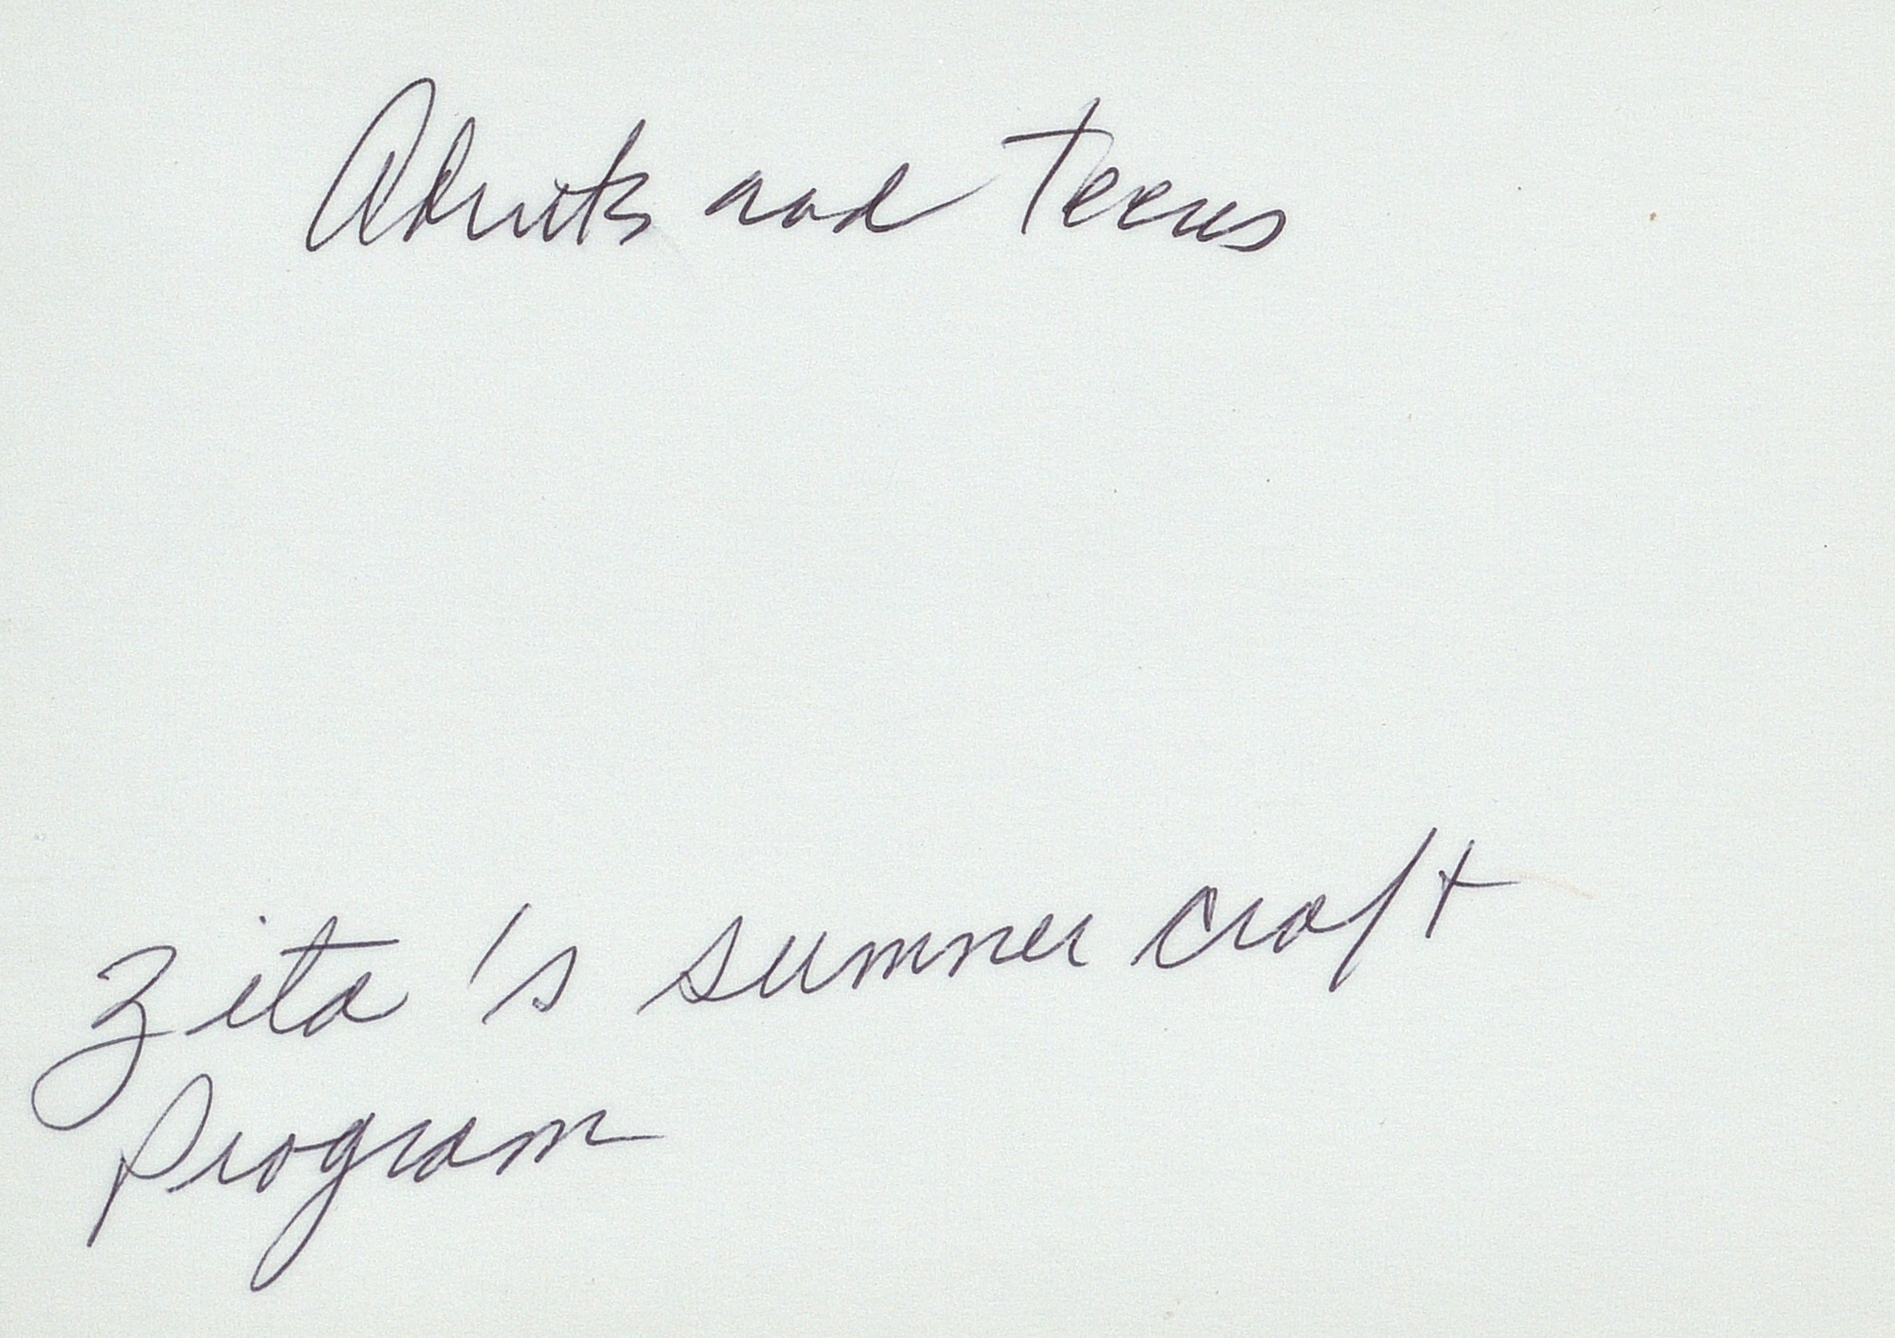 Adults and Teens
Zita's summer craft
Program